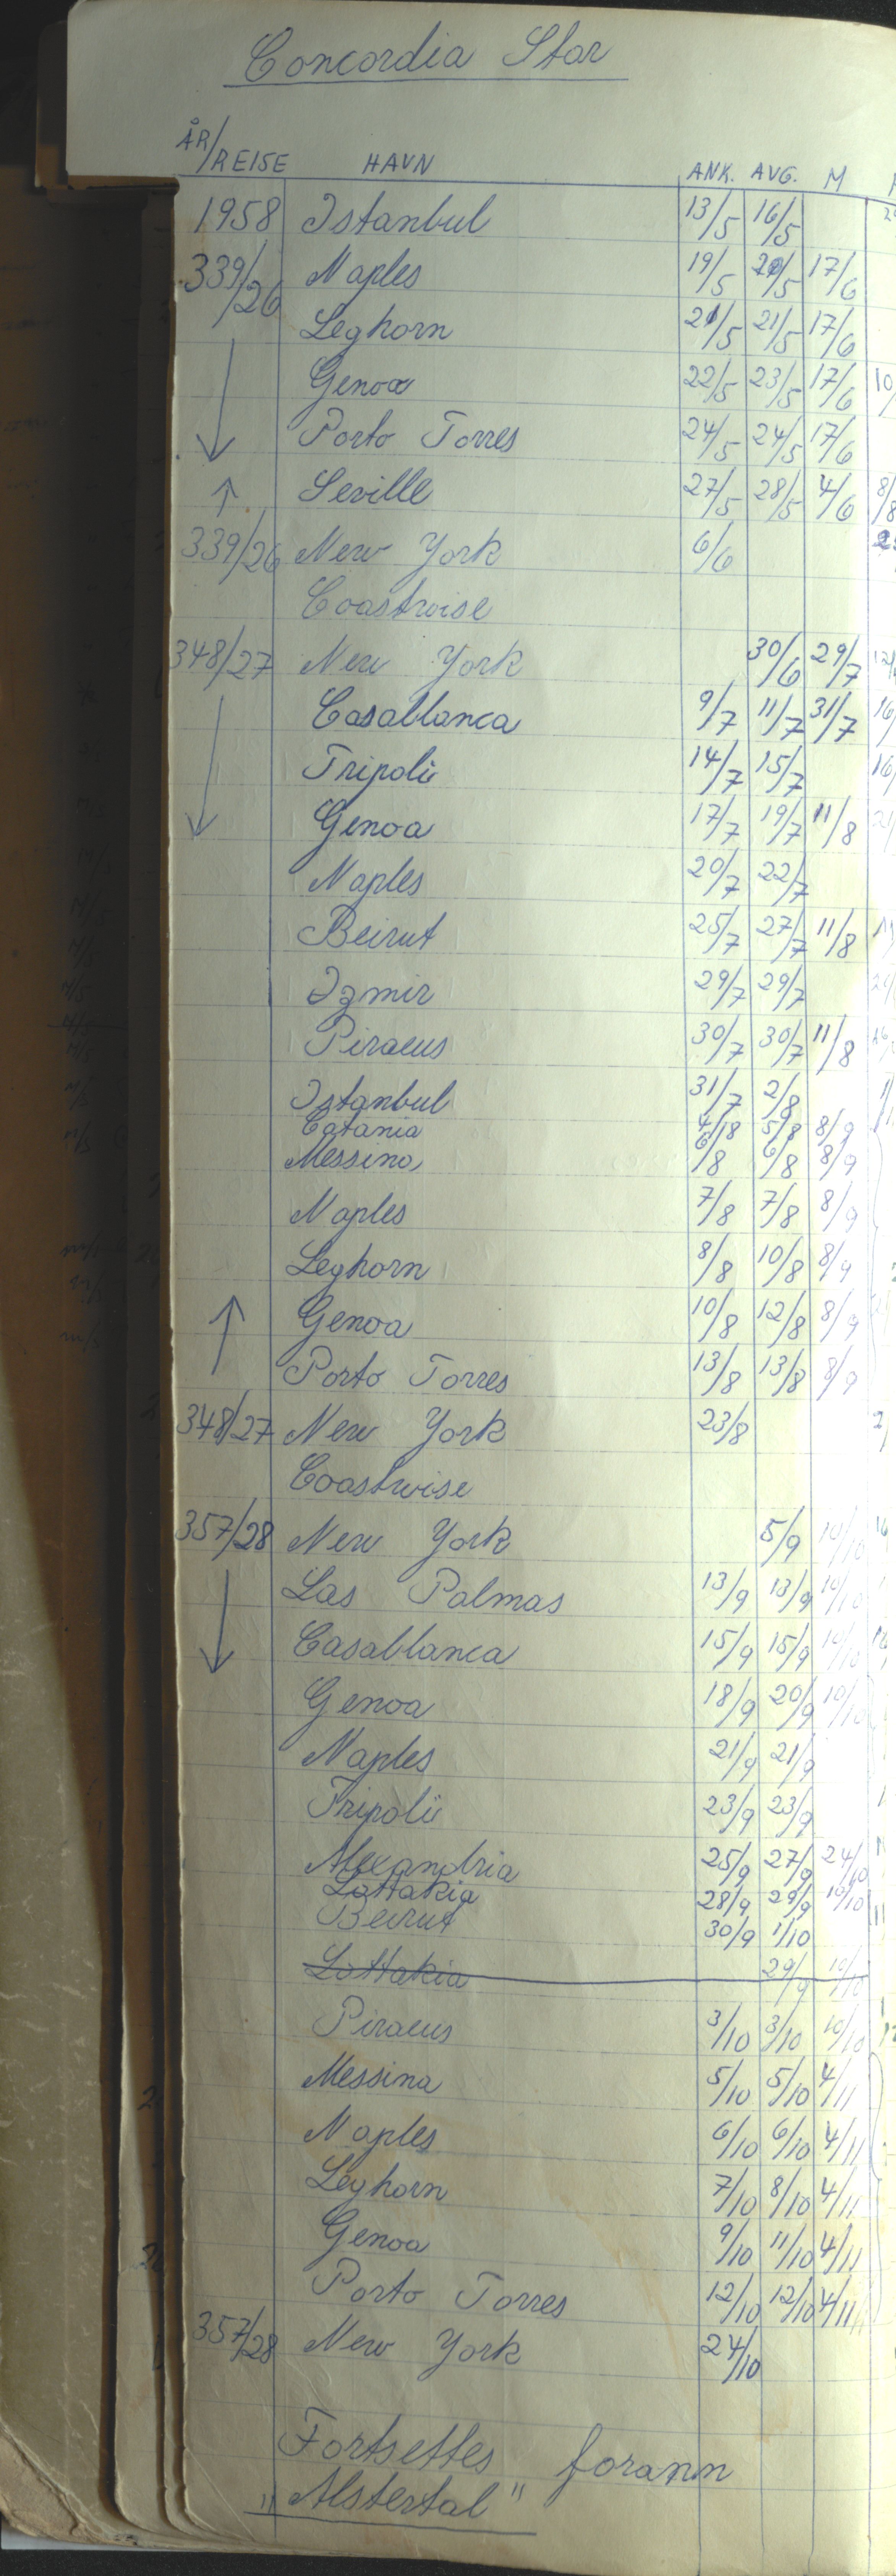 Concordia Star
ÅR/REISE HAVN ANK. AVG. M
1958 Istanbul 13/5 16/5
339/26 Naples 19/5 20/5 17/6
Leghorn 21/5 21/5 17/6
Genoa 22/5 23/5 17/6 10/
↓ Porto Torres 24/5 24/5 17/6
↑ Seville 27/5 28/5 4/6 8/8
339/26 New York 6/6
Coastwise
348/27 New York 30/6 29/7
↓ Casablanca 9/7 11/7 31/7
Tripoli 14/7 15/7
Genoa 17/7 19/7 11/8
Naples 20/7 22/7
Beirut 25/7 27/7 11/8
Izmir 29/7 29/7
Piraeus 30/7 30/7 11/8
Istanbul 31/7 2/8
Catania 4/8 5/8 8/9
Messina 6/8 6/8 8/9
Naples 7/8 7/8 8/9
Leghorn 8/8 10/8 8/9
↑ Genoa 10/8 12/8 8/9
Porto Torres 13/8 13/8 8/9
348/27 New York 23/8
Coastwise
357/28 New York 5/9 10/10
↓ Las Palmas 13/9 13/9 10/10
Casablanca 15/9 15/9 10/10
Genoa 18/9 20/9 10/10
Naples 21/9 21/9
Tripoli 23/9 23/9
Alexandria 25/9 27/9 24/10
Lattakia 28/9 29/9 10/10
Beirut 30/9 1/10
Lattakia 29/9 10/10
Piraeus 3/10 3/10 10/10
Messina 5/10 5/10 4/11
Naples 6/10 6/10 4/11
Leghorn 7/10 8/10 4/11
Genoa 9/10 11/10 4/11
Porto Torres 12/10 12/10 4/11
357/28 New York 24/10
Fortsettes forann
"Alstertal"